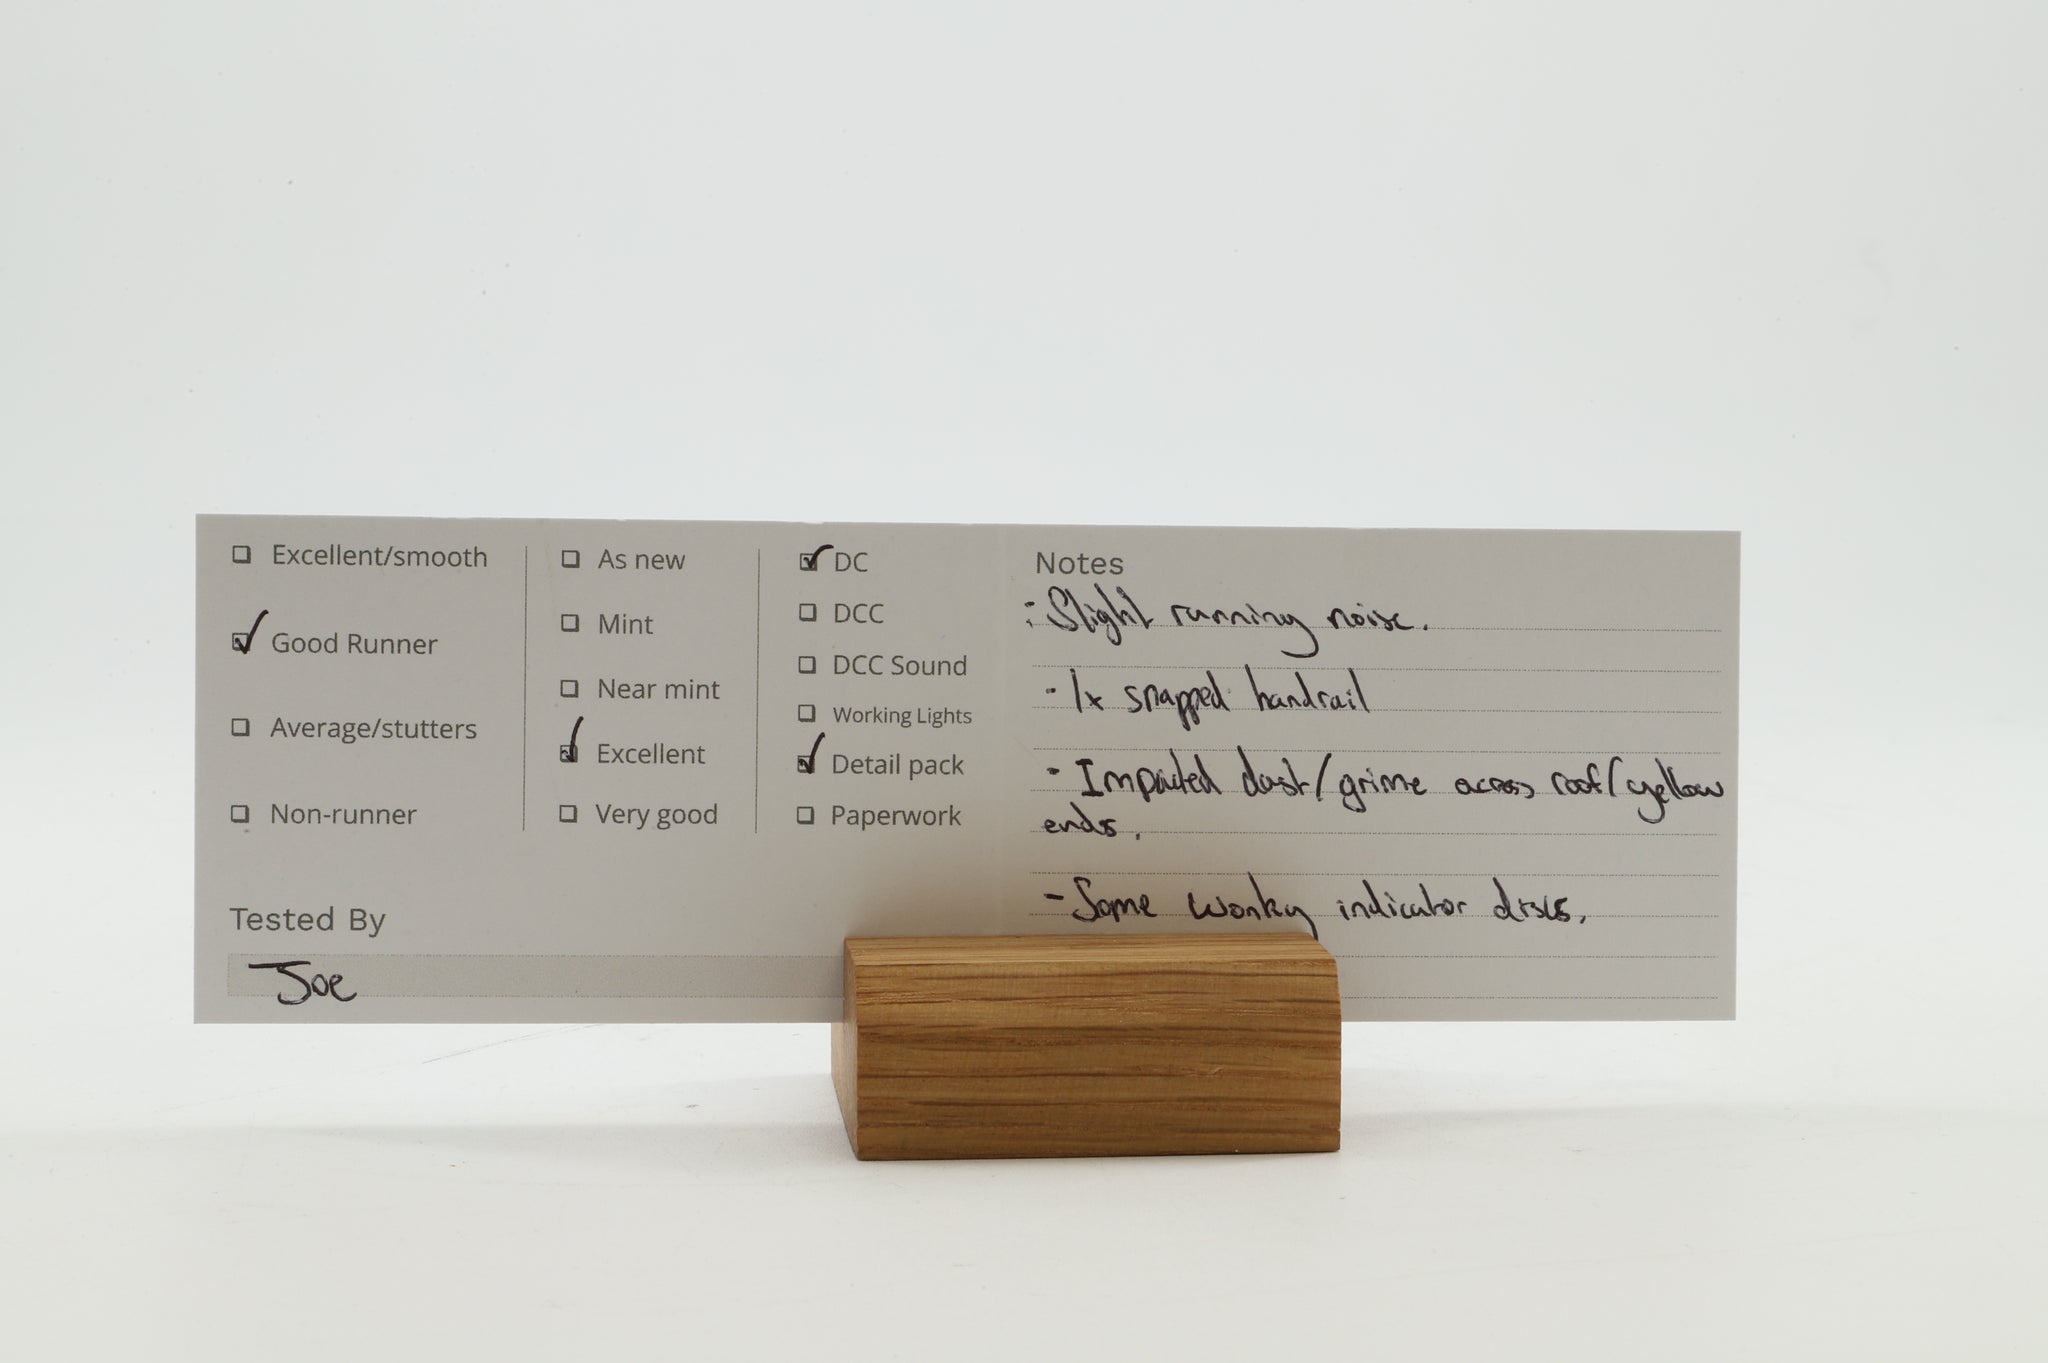 Excellent/smooth
Good Runner
Average/stutters
Non-runner
As new
Mint
Near mint
Excellent
Very good
DC
DCC
DCC Sound
Working Lights
Detail pack
Paperwork
Tested By
Joe
Notes
- Slight running noise.
- 1x snapped handrail
- Impacted dust/grime across roof/yellow
ends.
- Some wonky indicator discs.